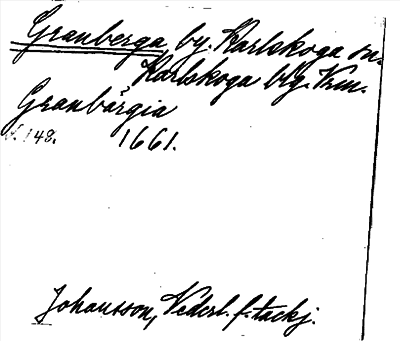 Granberga, by. Karlskoga sn.
Karlskoga blg. Vrm.
Granbärgia
s. 148. 1661.
Johansson, Vederl. f. tackj.